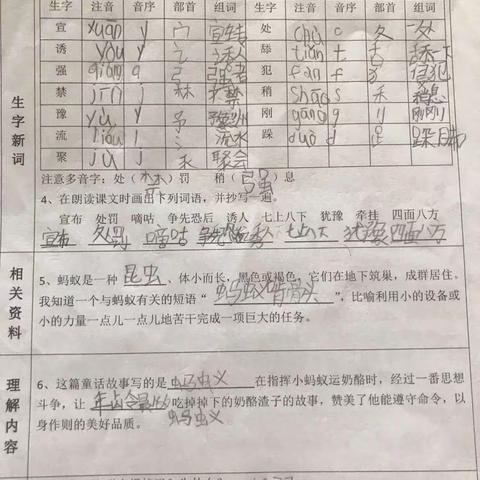 生字 注音 音序 部首 组词 生字 注音 音序 部首 组词
宣 xuān y 宀 处 chù c 夂 处
诱 yòu y 讠 诱人 舔 tiǎn t 舌 舔一下
强 qiáng q 弓 强者 犯 fàn f 犭 侵犯
禁 jìn j 林 禁 稍 shāo s 禾 稍息
豫 yù y 予 豫州 刚 gāng g 刂 刚刚
流 liú l 氵 流水 跺 duò d 跺脚
聚 jù j 聚会
生字新词
注意多音字：处（ ）罚 稍（强）息
4、在朗读课文时画出下列词语，并抄写一遍。
宣布 处罚 嘀咕 争先恐后 诱人 七上八下 犹豫 牵挂 四面八方
宣布 处罚 嘀咕 争先恐 七上下 犹豫 四面八方
相关资料
5、蚂蚁是一种 昆虫 、体小而长，黑色或褐色，它们在地下筑巢，成群居住。
我知道一个与蚂蚁有关的短语“ 蚂蚁啃骨头 ”，比喻利用小的设备或
小的力量一点儿一点儿地苦干完成一项巨大的任务。
理解内容
6、这篇童话故事写的是 蚂蚁 在指挥小蚂蚁运奶酪时，经过一番思想
斗争，让 年龄最小的 吃掉掉下的奶酪渣子的故事，赞美了他能遵守命令，以
身作则的美好品质。 蚂蚁